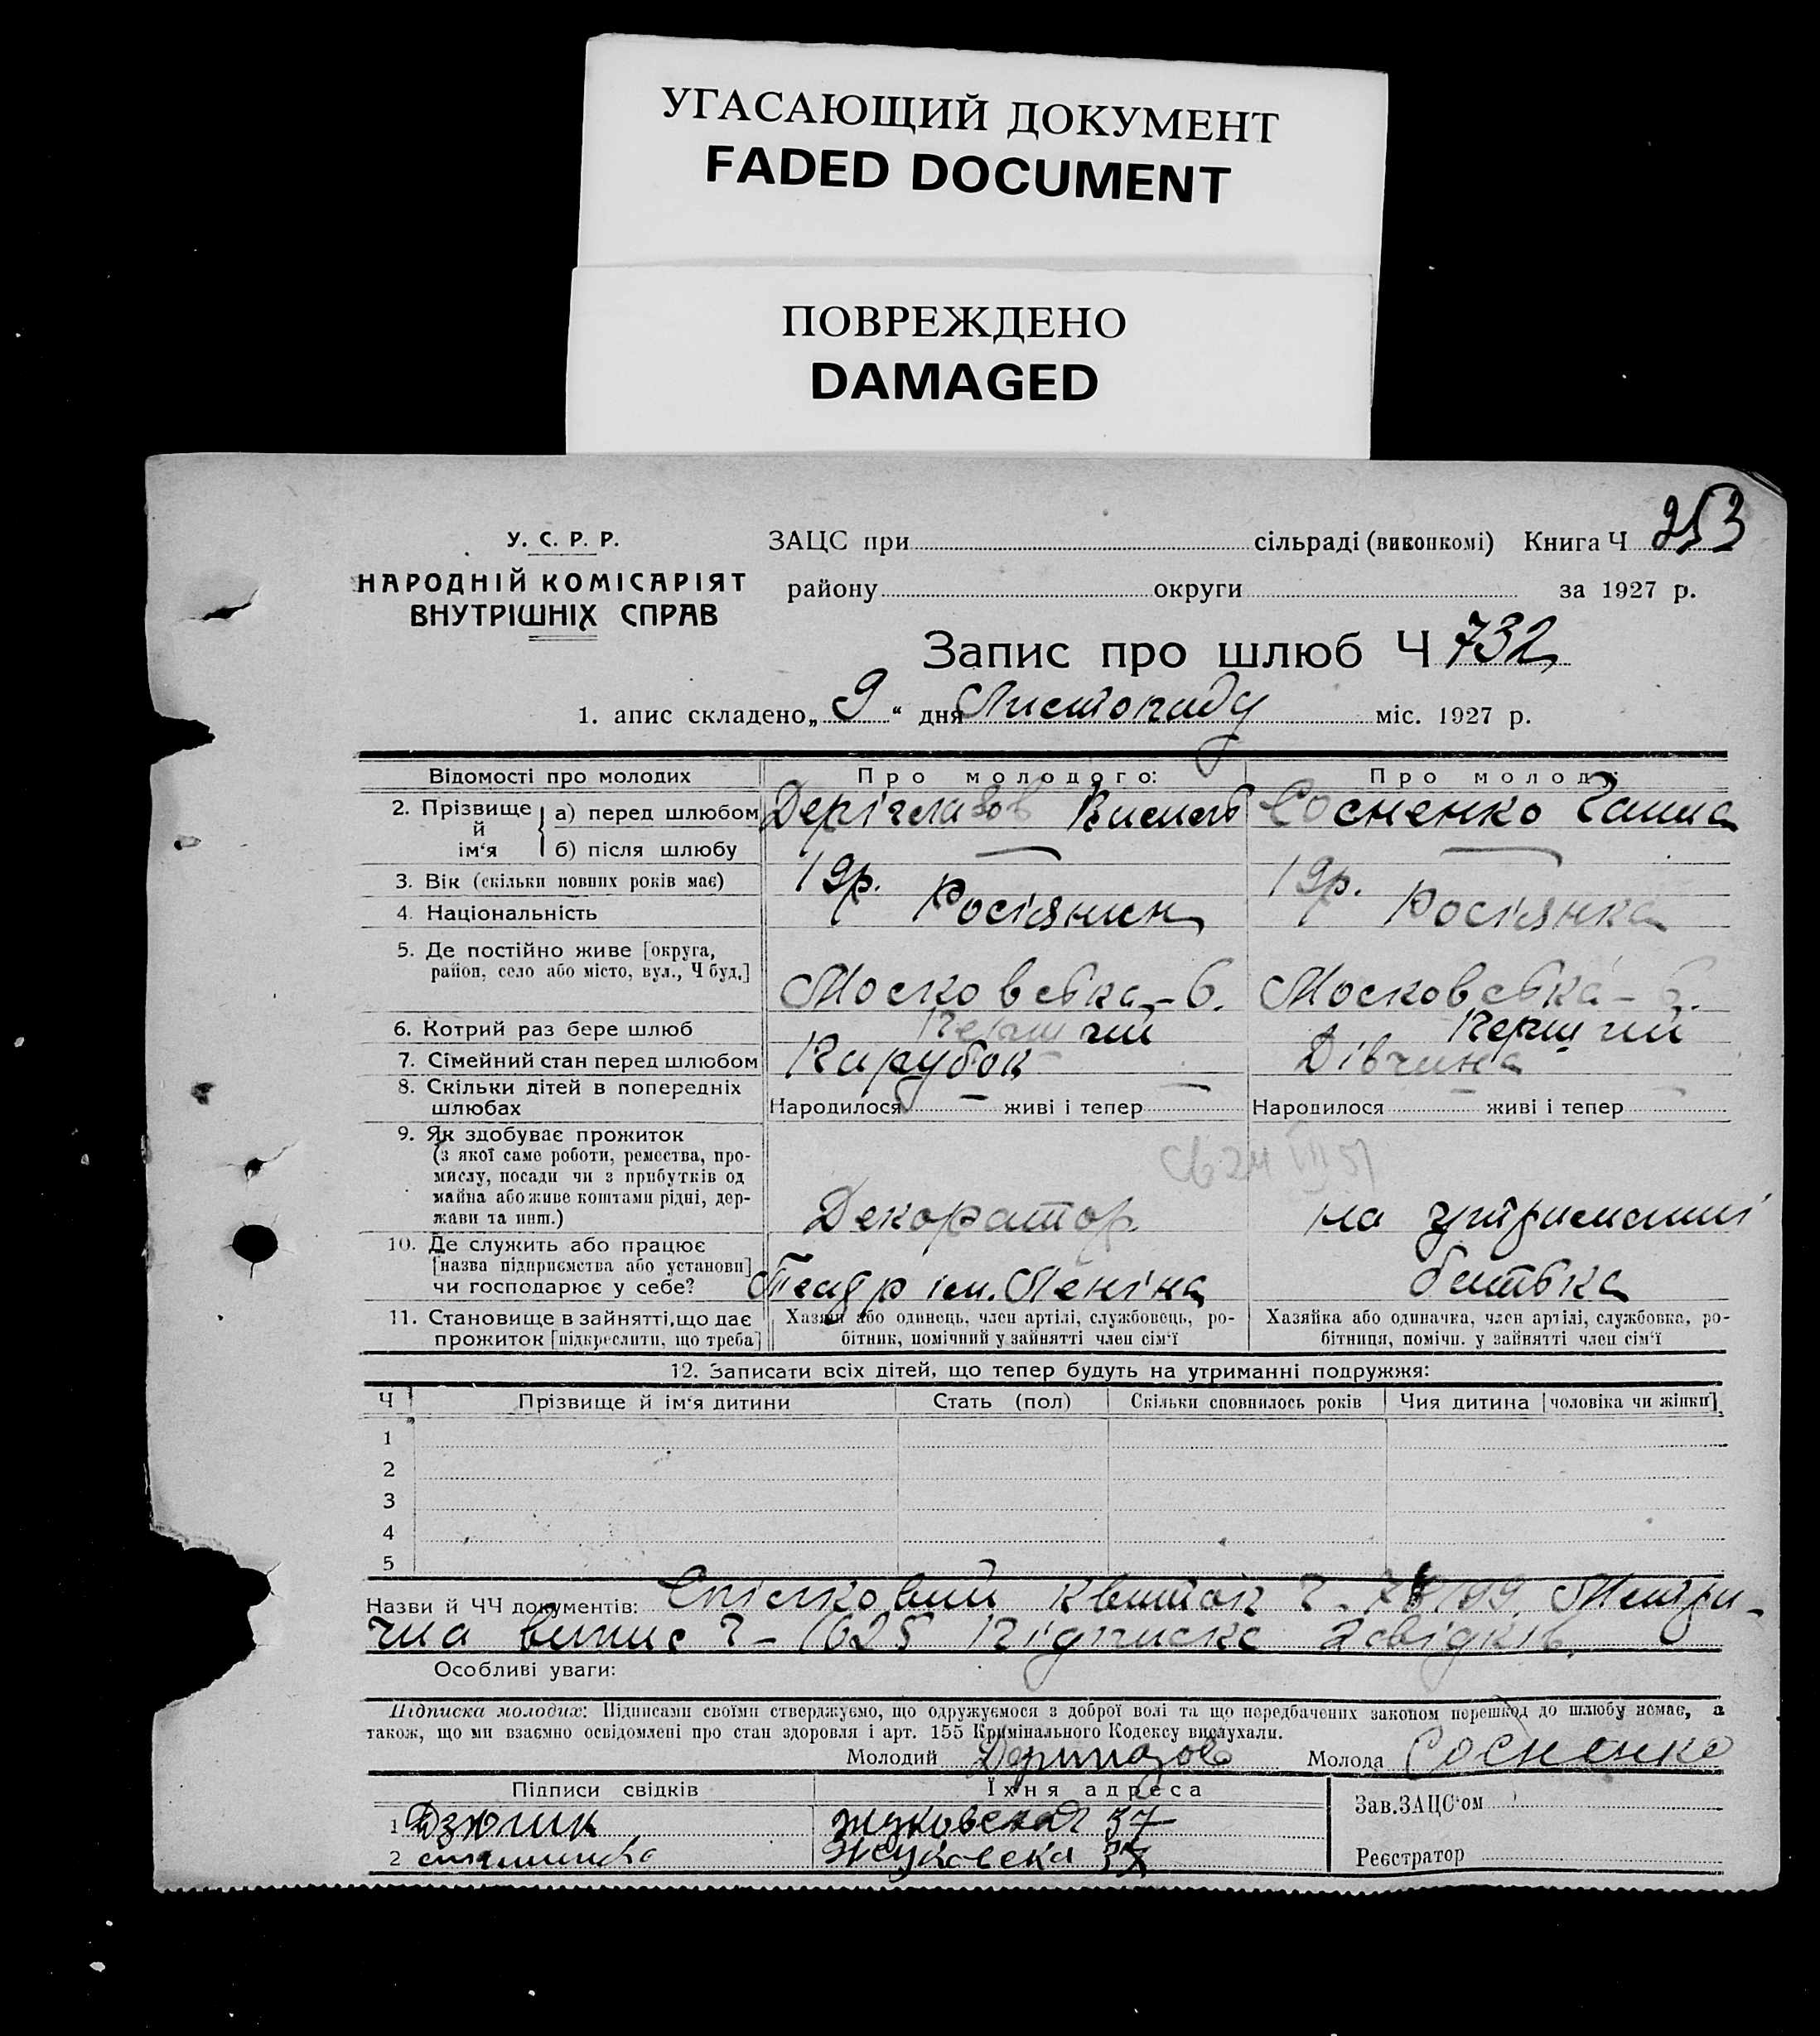 УГАСАЮЩИЙ ДОКУМЕНТ
FADED DOCUMENT
ПОВРЕЖДЕНО
DAMAGED
253
У. С. Р. Р.
НАРОДНІЙ КОМІСАРІЯТ
ВНУТРІШНІХ СПРАВ
ЗАЦС при сільраді (виконкомі) Книга Ч
району округи за 1927 р.
Запис про шлюб Ч 732
1. апис складено „ 9 “ дня Листопаду міс. 1927 р.
Відомості про молодих Про молодого: Про молоду:
2. Прізвище й ім‘я а) перед шлюбом Дерiглазов Сосненко Ганна
б) після шлюбу — —
3. Вік (скільки повних років має) 19р. 19р.
4. Національність Росіянин Росіянка
5. Де постійно живе [округа,
район, село або місто, вул., Ч буд.] Московська-6. Московська-6.
6. Котрий раз бере шлюб Перший Перший
7. Сімейний стан перед шлюбом Парубок Дівчина
8. Скільки дітей в попередніх
шлюбах Народилося — живі і тепер — Народилося — живі і тепер —
9. Як здобуває прожиток
(з якої саме роботи, ремества, про-
мислу, посади чи з прибутків од
майна або живе коштами рідні, дер-
жави та инш.) Декоратор на утриманні
10. Де служить або працює
[назва підприємства або установи]
чи господарює у себе? Театр ім. Леніна батька
11. Становище в зайнятті, що дає
прожиток [підкреслити, що треба]
Хазяїн або одинець, член артілі, службовець, ро-
бітник, помічний у зайнятті член сім‘ї
Хазяйка або одиначка, член артілі, службовка, ро-
бітниця, помічн. у зайнятті член сім‘ї
12. Записати всіх дітей, що тепер будуть на утриманні подружжя:
Ч Прізвище й ім‘я дитини Стать (пол) Скільки сповнилось років Чия дитина [чоловіка чи жінки]
1
2
3
4
5
Назви й ЧЧ документів: Спілковий квиток Ч Метри-
чна випис Ч- 1625 Підписка 2 свідків.
Особливі уваги:
Підписка молодих: Підписами своїми стверджуємо, що одружуємося з доброї волі та що передбачених законом перешкод до шлюбу немає, а
також, що ми взаємно освідомлені про стан здоровля і арт. 155 Крімінального Кодексу вислухали.
Молодий Молода Сосненко
Підписи свідків Їхня адреса
1 Дзюлик Жуковская 37
2 Жуковска 37
Зав.ЗАЦС‘ом
Реєстратор